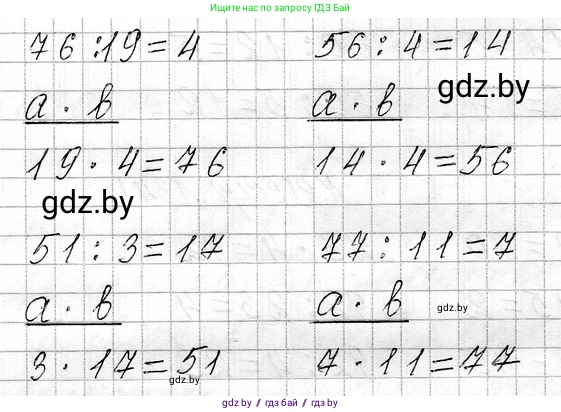 Ищите нас по запросу ГДЗ Бай
76 : 19 = 4
56 : 4 = 14
gdz.by
а · в
а · в
19 · 4 = 76
14 · 4 = 56
gdz.by
51 : 3 = 17
77 : 11 = 7
а · в
а · в
gdz.by
3 · 17 = 51
7 · 11 = 77
gdz.by
gdz.by // гдз бай // гдз.by